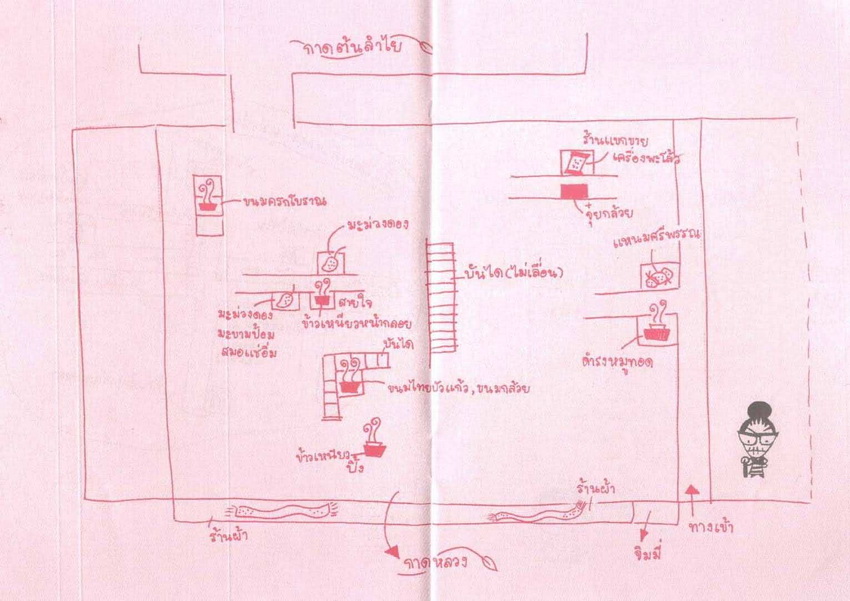 กาดต้นลำไย
ร้านแขกขาย
เครื่องพะโล้ว
ขนมครกโบราณ
จุ๋ยกล้วย
มะม่วงดอง
แหนมศรีพรรณ
บันได (ไม่เลื่อน)
สายใจ
มะม่วงดอง
มะขามป้อม
สมอแช่อิ่ม
ข้าวเหนียวหน้ากลอย
บันได
ดำรงหมูทอด
ขนมไทยบัวแก้ว, ขนมกล้วย
ข้าวเหนียว
ปิ้ง
ร้านผ้า
ร้านผ้า
ทางเข้า
จิมมี่
กาดหลวง